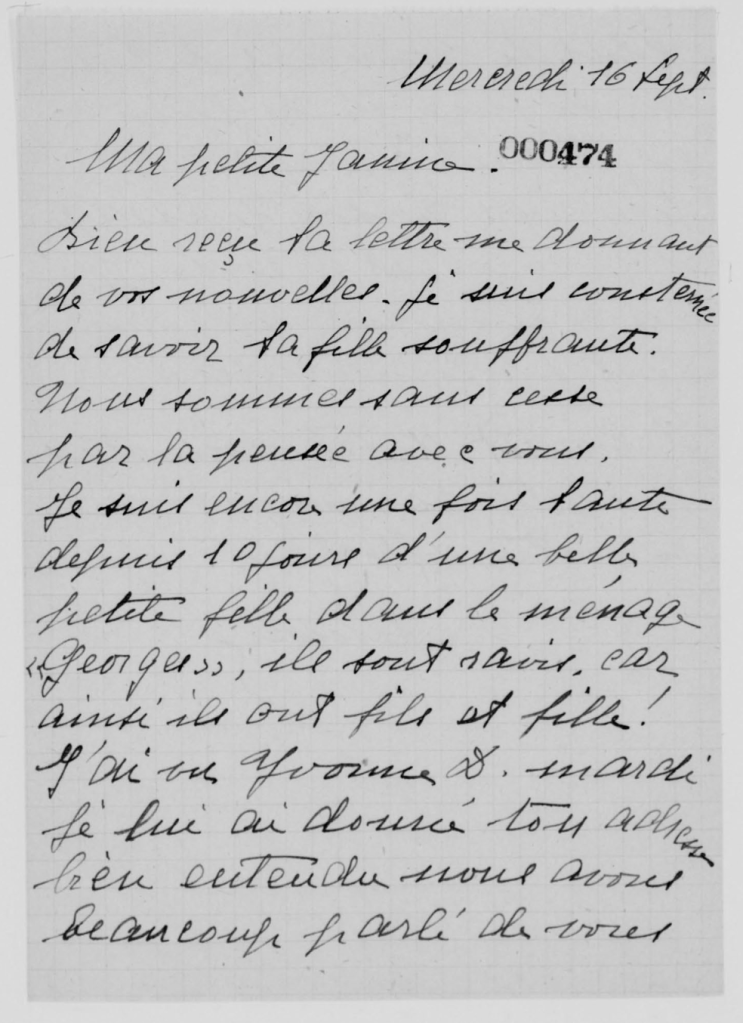 Mercredi 16 Sept.
Ma petite Janine.
000474
Bien reçu ta lettre me donnant
de vos nouvelles. Je suis consternée
de savoir ta fille souffrante.
Nous sommes sans cesse
par la pensée avec vous.
Je suis encore une fois tante
depuis 10 jours d'une belle
petite fille dans le ménage
«Georges», ils sont ravis, car
ainsi ils ont fils et fille!
J'ai vu Yvonne D. mardi
je lui ai donné ton adresse
bien entendu nous avons
beaucoup parlé de vous